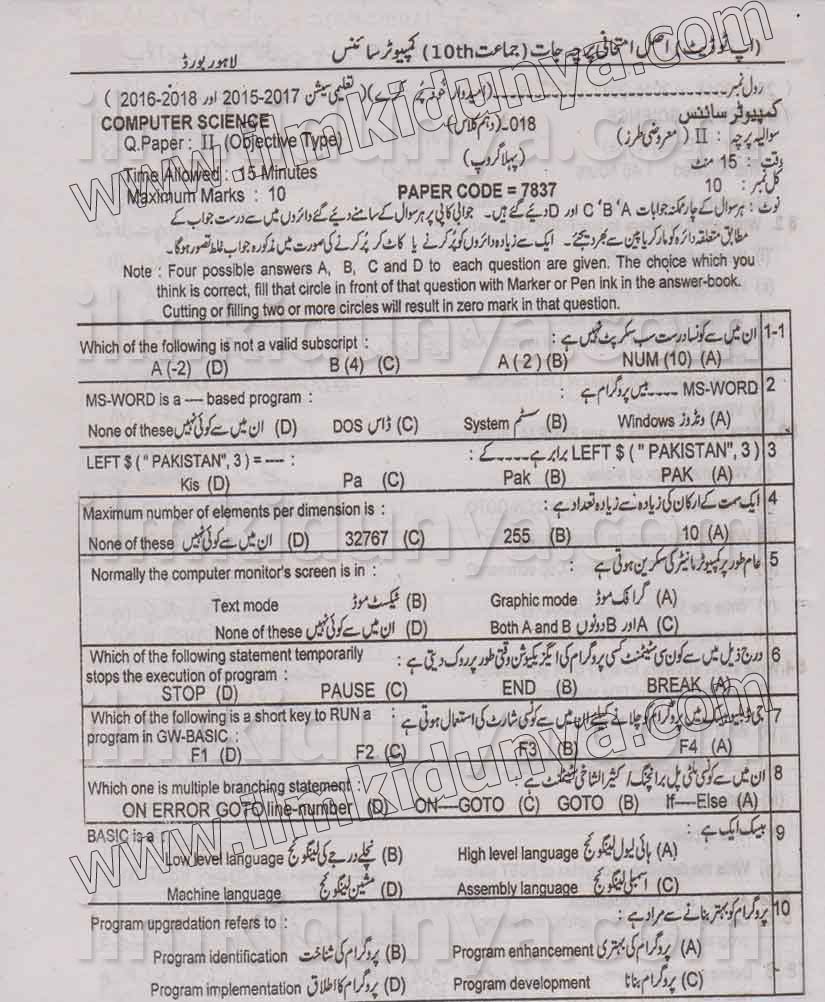 (اپ ٹو ڈیٹ) اصل امتحانی پرچہ جات (جماعت 10th) کمپیوٹر سائنس لاہور بورڈ
رول نمبر (امیدوار خود پُر کرے) (تعلیمی سیشن 2015-2017 اور 2016-2018)
کمپیوٹر سائنس 018-(دہم کلاس) COMPUTER SCIENCE
سوالیہ پرچہ : II (معروضی طرز) (پہلا گروپ) Q.Paper : II (Objective Type)
وقت : 15 منٹ Time Allowed : 15 Minutes
کل نمبر : 10 PAPER CODE = 7837 Maximum Marks : 10
نوٹ : ہر سوال کے چار ممکنہ جوابات A 'B 'C اور D دیئے گئے ہیں۔ جوابی کاپی پر ہر سوال کے سامنے دیئے گئے دائروں میں سے درست جواب کے
مطابق متعلقہ دائرہ کو مارکر یا پین سے بھر دیجئے۔ ایک سے زیادہ دائروں کو پُر کرنے یا کاٹ کر پُر کرنے کی صورت میں مذکورہ جواب غلط تصور ہوگا۔
Note : Four possible answers A, B, C and D to each question are given. The choice which you
think is correct, fill that circle in front of that question with Marker or Pen ink in the answer-book.
Cutting or filling two or more circles will result in zero mark in that question.
1-1 ان میں سے کونسا درست سب سکرپٹ نہیں ہے : Which of the following is not a valid subscript :
NUM (10) (A) A ( 2 ) (B) B (4) (C) A (-2) (D)
2 MS-WORD ---- بیس پروگرام ہے : MS-WORD is a ---- based program :
(A) ونڈوز Windows (B) سسٹم System (C) ڈاس DOS (D) ان میں سے کوئی نہیں None of these
3 LEFT $ ( " PAKISTAN", 3 ) برابر ہے ---- کے : LEFT $ ( " PAKISTAN", 3 ) = ---- :
PAK (A) Pak (B) Pa (C) Kis (D)
4 ایک سمت کے ارکان کی زیادہ سے زیادہ تعداد ہے : Maximum number of elements per dimension is :
10 (A) 255 (B) 32767 (C) (D) ان میں سے کوئی نہیں None of these
5 عام طور پر کمپیوٹر مانیٹر کی سکرین ہوتی ہے : Normally the computer monitor's screen is in :
(A) گرافک موڈ Graphic mode (B) ٹیکسٹ موڈ Text mode
(C) A اور B دونوں Both A and B (D) ان میں سے کوئی نہیں None of these
6 درج ذیل میں سے کون سی سٹیٹمنٹ کسی پروگرام کی ایگزیکیوشن وقتی طور پر روک دیتی ہے : Which of the following statement temporarily
stops the execution of program :
BREAK (A) END (B) PAUSE (C) STOP (D)
7 جی ڈبلیو بیسک میں پروگرام کو چلانے کیلئے ان میں سے کونسی شارٹ کی استعمال ہوتی ہے : Which of the following is a short key to RUN a
program in GW-BASIC :
F4 (A) F3 (B) F2 (C) F1 (D)
8 ان میں سے کونسی ملٹی پل برانچنگ / کثیر الشاخی سٹیٹمنٹ ہے : Which one is multiple branching statement :
If----Else (A) GOTO (B) ON----GOTO (C) ON ERROR GOTO line-number (D)
9 بیسک ایک ہے : BASIC is a :
(A) ہائی لیول لینگوئج High level language (B) نچلے درجے کی لینگوئج Low level language
(C) اسمبلی لینگوئج Assembly language (D) مشین لینگوئج Machine language
10 پروگرام کو بہتر بنانے سے مراد ہے : Program upgradation refers to :
(A) پروگرام کی بہتری Program enhancement (B) پروگرام کی شناخت Program identification
(C) پروگرام بنانا Program development (D) پروگرام کا اطلاق Program implementation
www.ilmkidunya.com
www.ilmkidunya.com
ilmkidunya.com